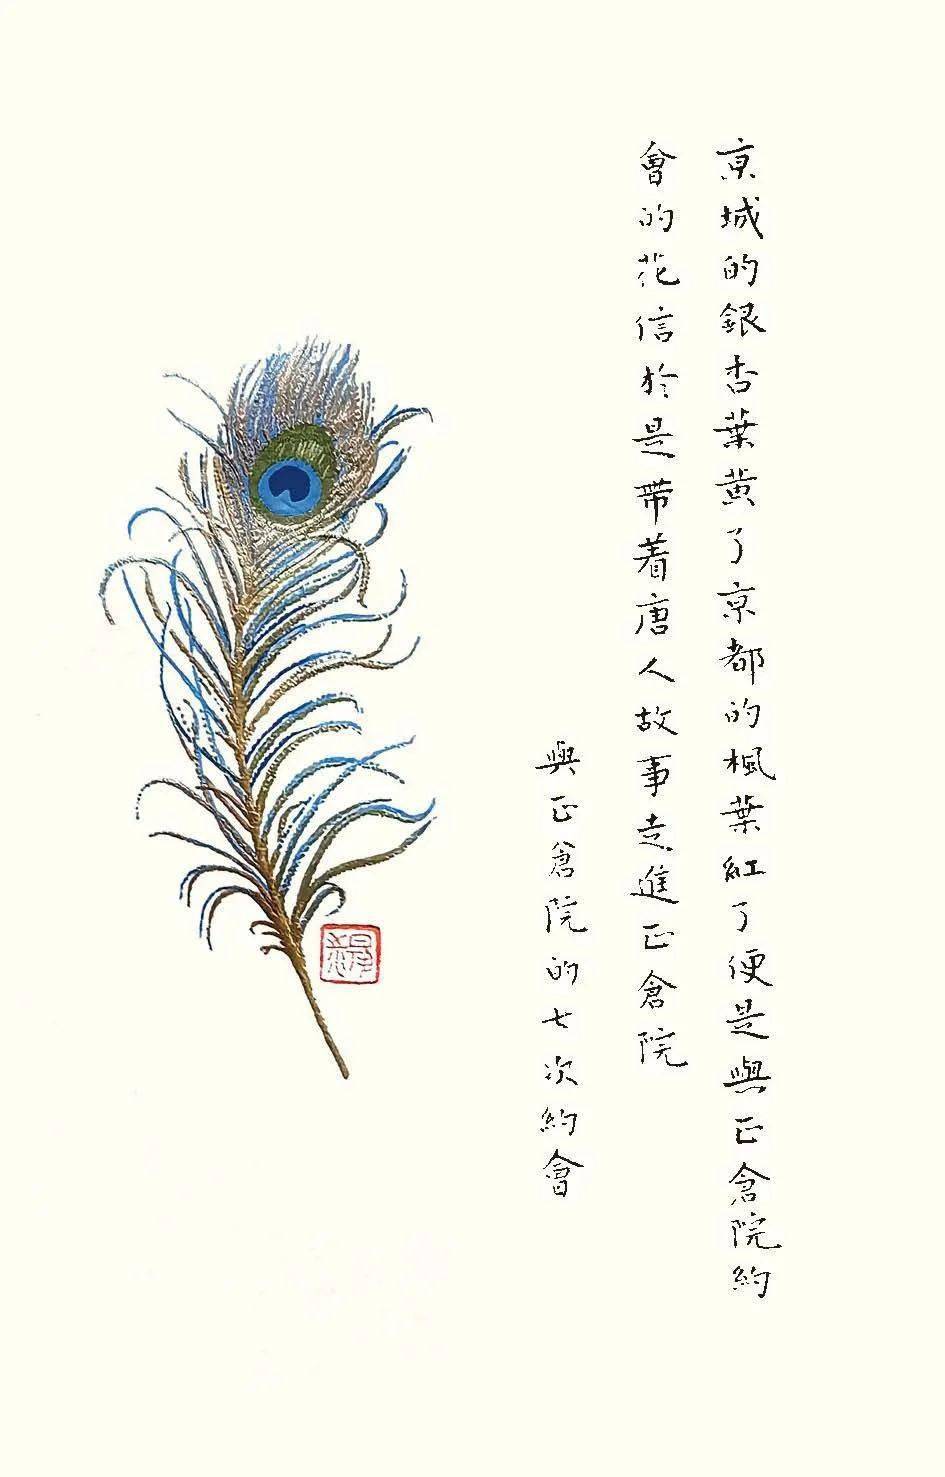 京城的銀杏葉黄了京都的楓葉紅了便是與正倉院約
會的花信於是帶着唐人故事走進正倉院
與正倉院的七次約會